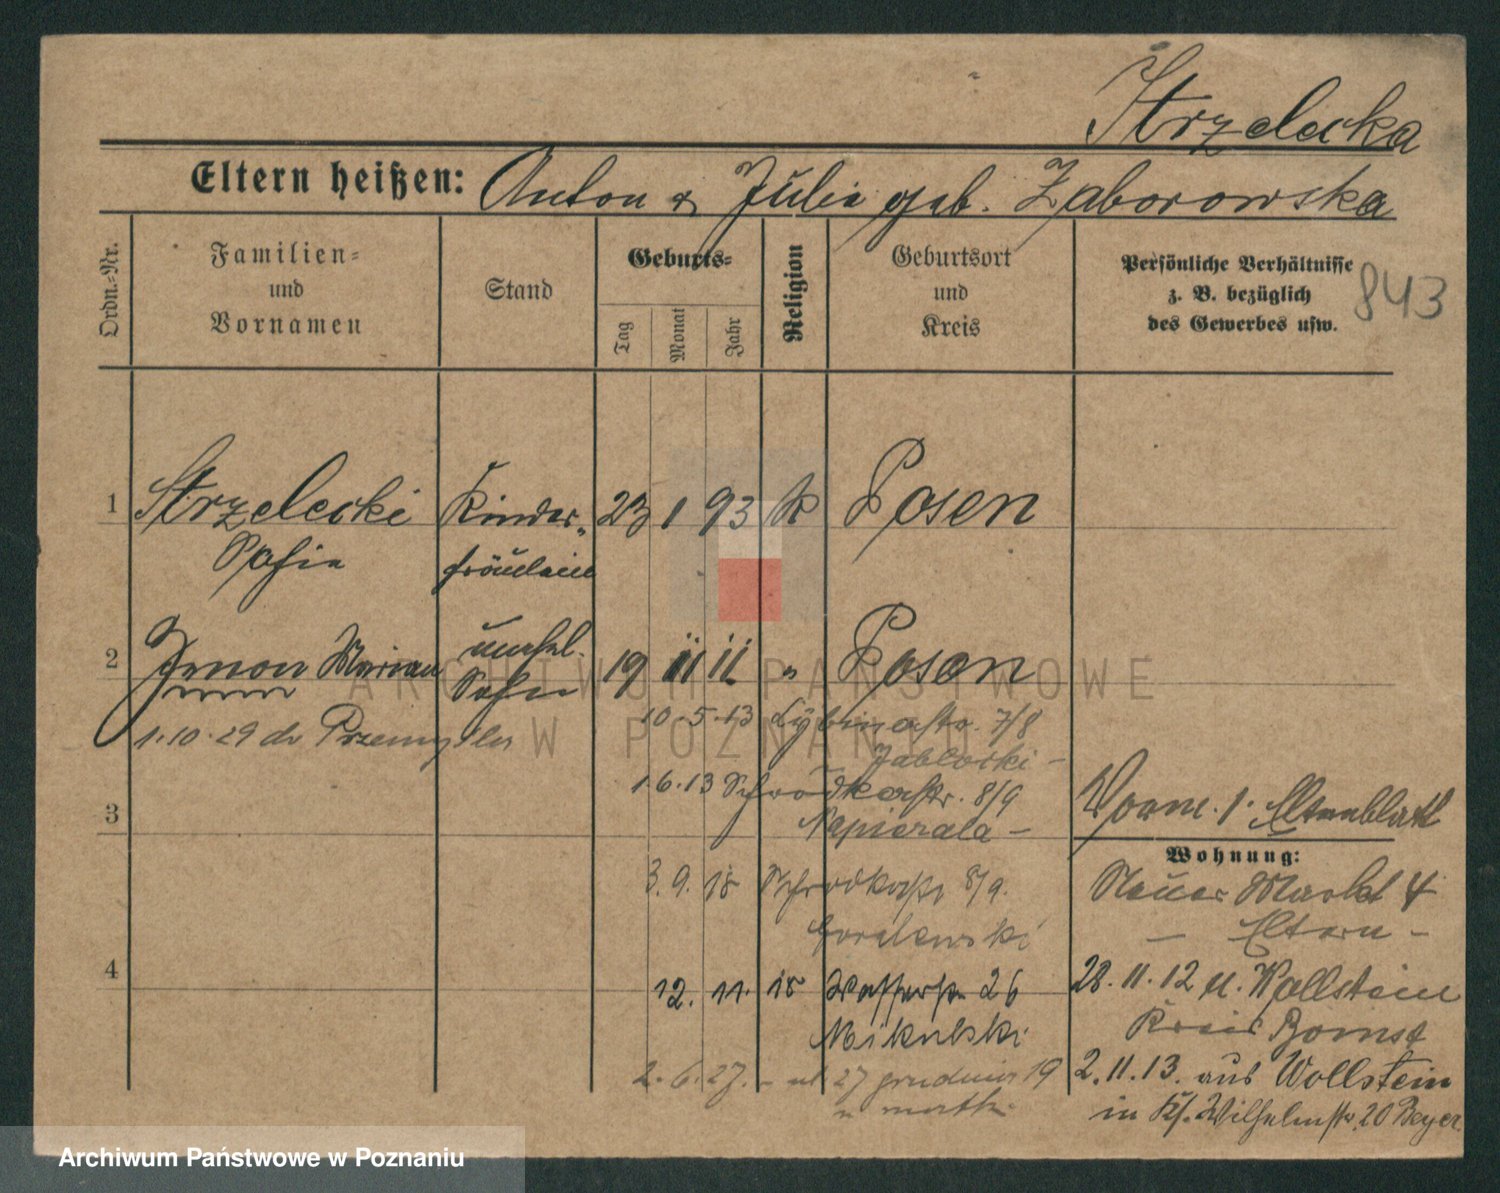 Strzelecka
Eltern heißen: Anton & Julie geb. Zaborowska
Ordn.-Nr.
Familien- und Vornamen
Stand
Geburts-
Tag
Monat
Jahr
Religion
Geburtsort und Kreis
Persönliche Verhältnisse
z. B. bezüglich
des Gewerbes usw.
843
1 Strzelecki Kinder- 23 1 93 k Posen
Sofie fräulein
2 Zenon Marian unehel. 19 11 11 " Posen
Sohn
1.10.29 do Przemyśla
10.5.13 Lybinastr. 7/8
Jablocki -
1.6.13 Schrodkastr. 8/9
Napierala -
3
3.9.15 Schrodkastr 8/9.
Goralewski
4
12. 11. 15 Wasserstr 26
Mikulski
2.6.27. - ul 27 grudnia 19
u matki
Vorm. 1. Elternblatt
Wohnung:
Neuer Markt 4
- Eltern -
28.11.12 n. Wollstein
Kreis Bomst
2.11.13. aus Wollstein
in Ks. Wilhelmstr. 20 Beyer
ARCHIWUM PAŃSTWOWE
W POZNANIU
Archiwum Państwowe w Poznaniu